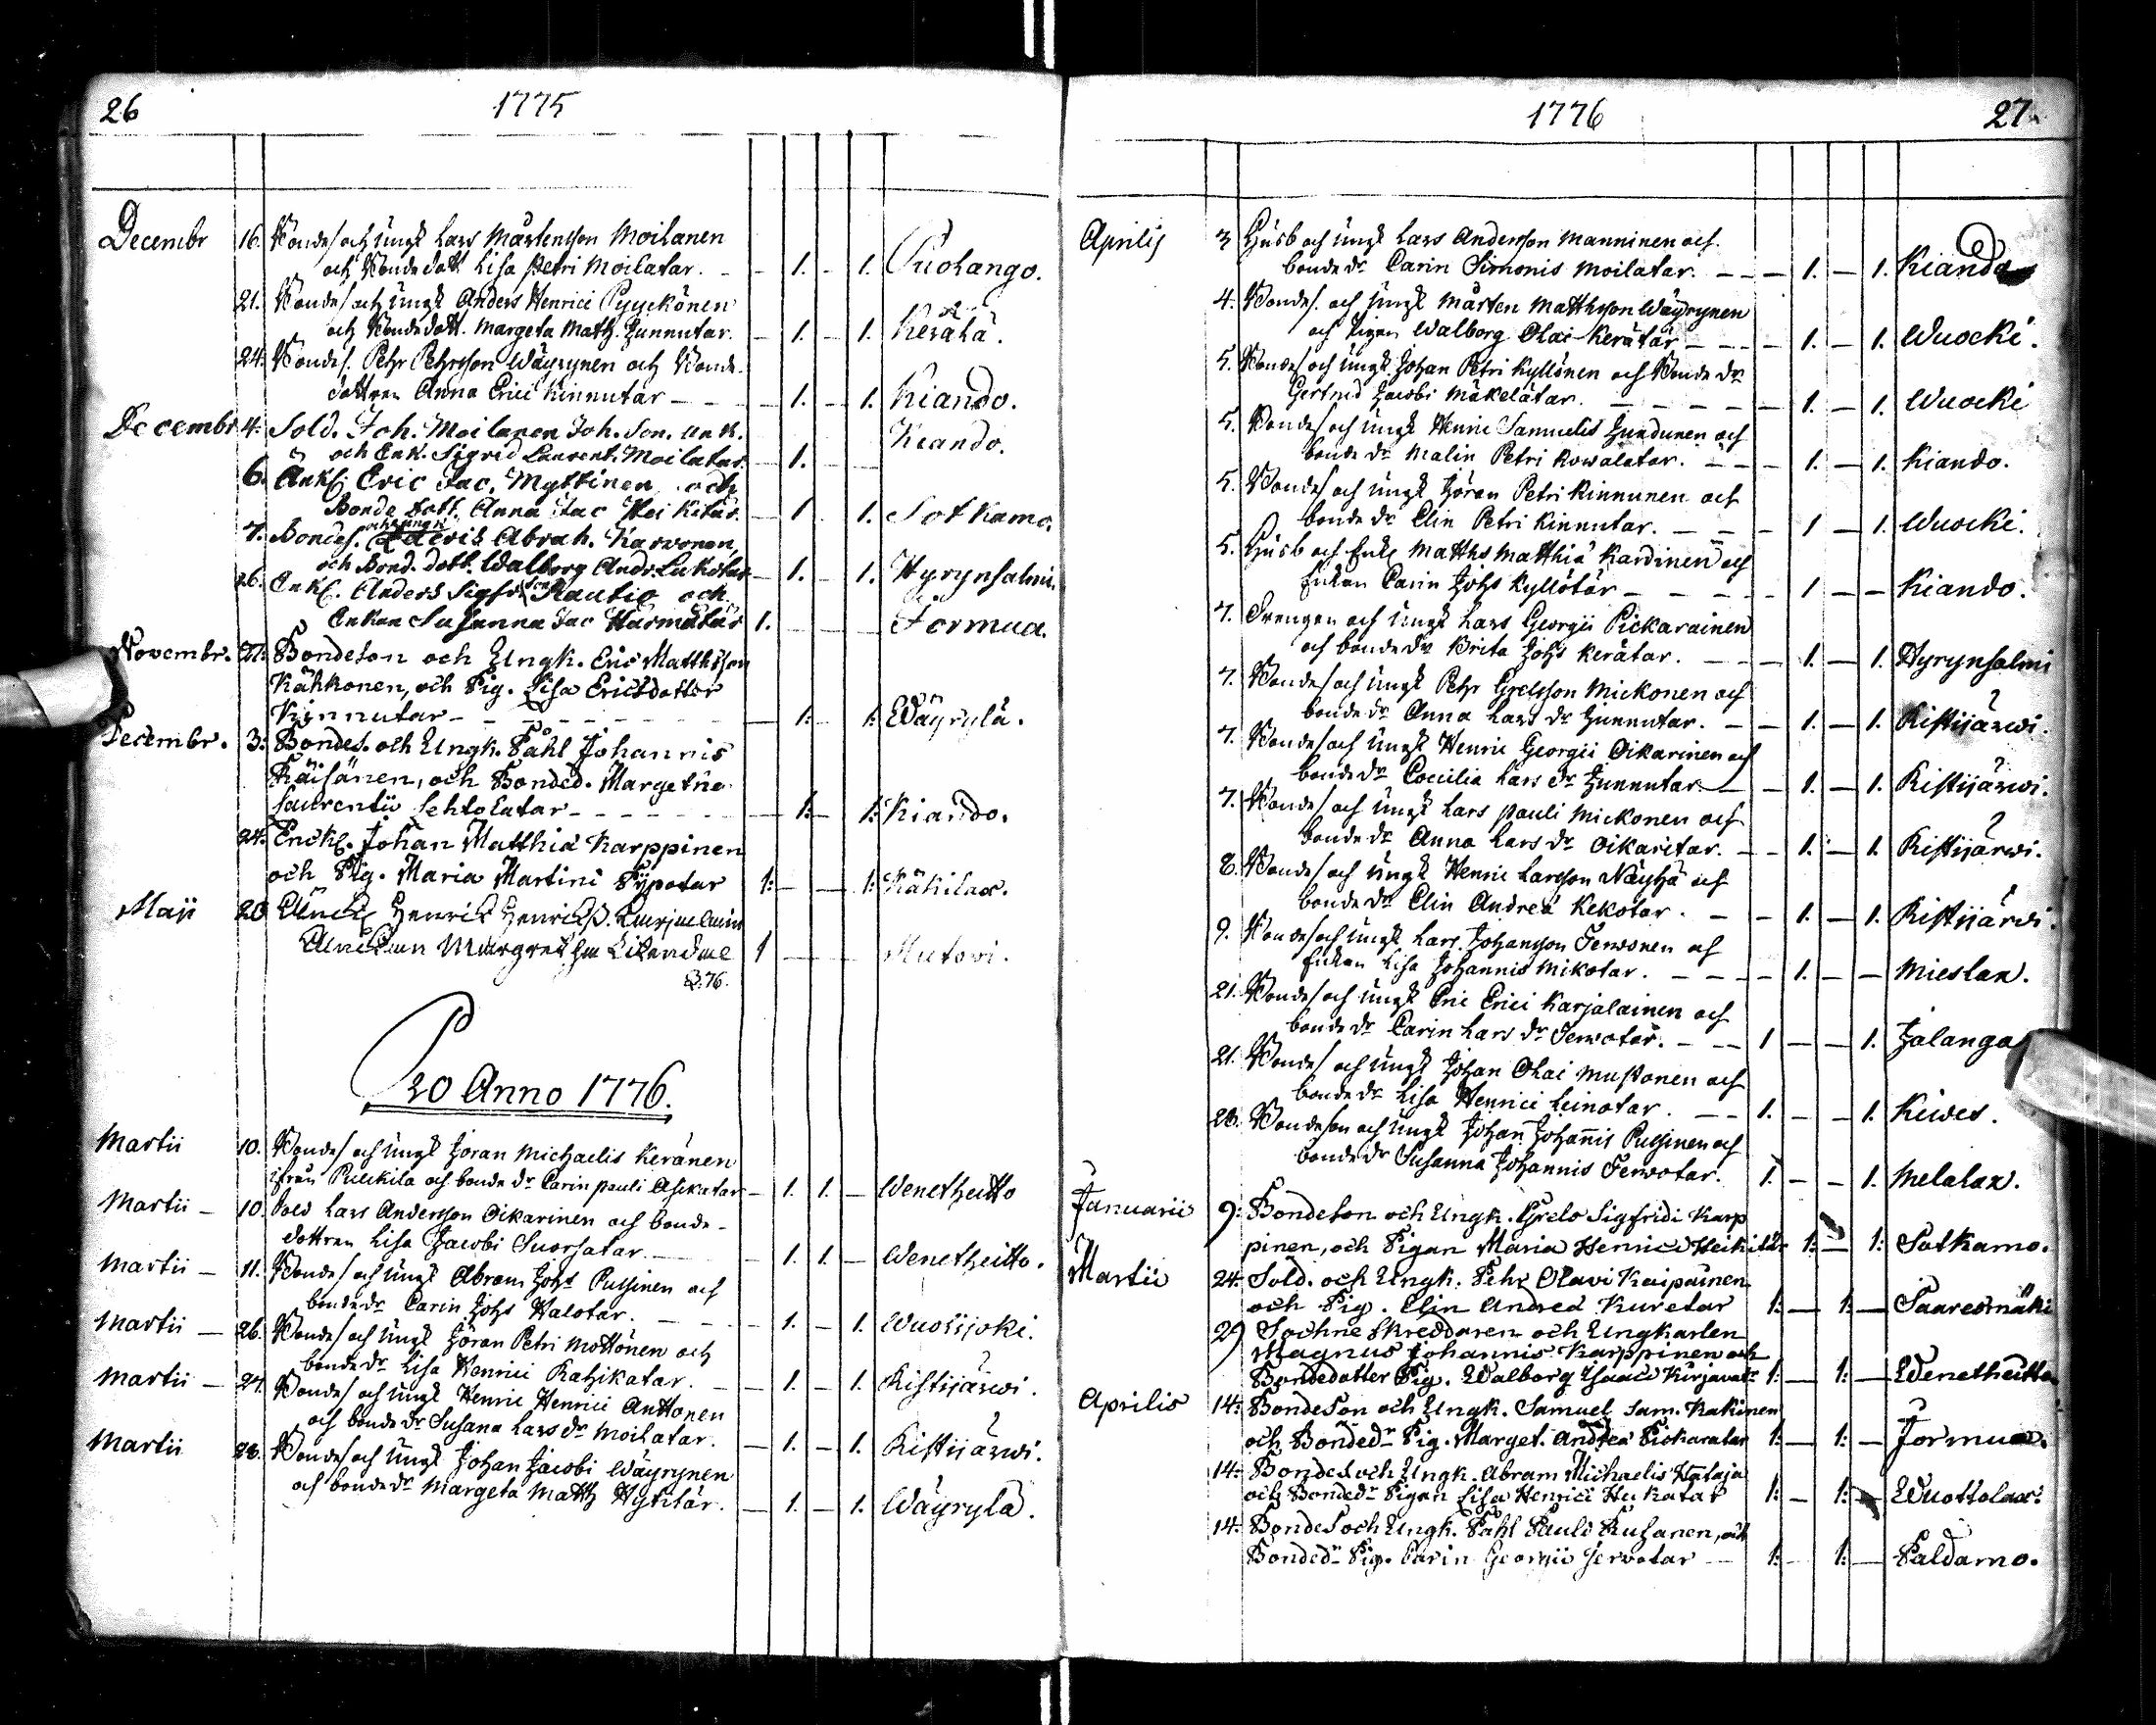 26
1775
Decembr 16. Bondes och ungk Lars Mårtensson Moilanen
och Bonde dott Lisa Petri Moilatar. - - 1. - 1. Puolango.
21. Bondes. och ungk Anders Henrici Pyyckönen
och Bonde dott. Margeta Math. Junnutar. - 1. - 1. Kerälä.
24. Bondes. Pehr Pehrsson Wäyrynen och Bonde-
dottren Anna Erici Kinnutar - - - 1. - 1. Kiando.
Decembr 4. Sold. Joh. Moilanen Joh. Son. Enk.
och Enk. Sigrid Laurent. Moilatar. - 1. - - Kiando.
6. Änkl. Eric Jac. Myttinen och
Bonde dott. Anna Jac Heikitär. - 1 - 1. Sotkamo.
7. Bondes. och ungk Abrah. Karvonen,
och Bond. dott. Walborg Andr. Lukotar - 1. - 1. Hyrynsalmi.
26. Enkl. Anders Sigfr. son Rautio och
Enkan Susanna Jac Härmätär 1. - - - Jormua.
Novembr. 21: Bondeson och Ungk. Eric Matthsson
Kähkonen, och Pig. Lisa Ericsdotter
Kinnutar - - - - - - - 1:- 1: Wäyrylä.
Decembr. 3: Bondes. och Ungk. Påhl Johannis
Räisänen, och Bonded. Margetha
Laurentii Lehtolatar - - - - - - 1:- 1: Kiando.
24: Enckl. Johan Matthiæ Karppinen
och Pig. Maria Martini Pypotar 1:- - 1: Käkilax.
Maji 20 Änckl Henrik Henricss. Karjalain
Änckan Margretha Likendal 1 - - - Mutovi.
P. 76.
P
20 Anno 1776.
Martii 10. Bondes och ungk Jöran Michaelis Keränen
ifrån Pulckila och bonde dr Carin Pauli Asikatar - 1. 1. - Wenetheitto
Martii - 10. Sold Lars Andersson Oikarinen och bonde-
dottren Lisa Jacobi Suorsatar. - - 1. 1. - Wenetheitto.
Martii - 11. Bondes och ungk Abram Johs Pulsinen och
bonde dr Carin Johs Halotar. - - - 1. - 1. Wuolijoki.
Martii - 26. Bondes och ungk Jöran Petri Mottönen och
bonde dr Lisa Henrici Rahikatar. - - 1. - 1. Ristijärwi.
Martii - 27. Bondes och ungk Henric Henrici Anttonen
och bonde dr Susana Lars dr Moilatar. - 1. - 1. Ristijärwi.
Martii 28. Bondes och ungk Johan Jacobi Wäyrynen
och bonde dr Margeta Matth Hytitär. - 1. - 1. Wäyrylä.
1776
27.
Aprilis 3 Husb och ungk Lars Andersson Manninen och
bonde dr Carin Simonis Moilatar. - - - 1. - 1. Kiando
4. Bondes. och ungk Mårten Matthsson Wäyrynen
och Pigan Walborg Olai Kerätär - - - 1. - 1. Wuocki.
5. Bondes och ungk Johan Petri Kyllönen och Bonde dr
Gertrud Jacobi Mäkelätar. - - - - - 1. - 1. Wuocki
5. Bondes och ungk Henric Samuelis Jundunen och
bonde dr Malin Petri Kowalatar. - - - 1. - 1. Kiando.
5. Bondes och ungk Jöran Petri Kinnunen och
bonde dr Elin Petri Kinnutar. - - - - 1 - 1. Wuocki.
5. Husb och Enkl Matths Matthiæ Kardinen och
Enkan Carin Johs Kyllötär - - - - - 1 - - Kiando.
7. Drengen och ungk Lars Georgii Pickarainen
och bonde dr Brita Johs Kerätar. - - - 1. - 1. Hyrynsalmi
7. Bondes och ungk Pehr Grelsson Mickonen och
bonde dr Anna Lars dr Junnutar. - - 1. - 1. Ristijärwi.
7. Bondes och ungk Henric Georgii Oikarinen och
bonde dr Coecilia Lars dr Junnutar. - - 1. - 1. Ristijärwi.
7. Bondes och ungk Lars Pauli Mickonen och
bonde dr Anna Lars dr Oikaritar. - - 1. - 1. Ristijärwi.
8. Bondes och ungk Henric Larsson Näyhä och
bonde dr Elin Andreæ Kekotar. - - 1. - 1. Ristijärwi.
9. Bondes och ungk Lars Johansson Terwonen och
Enkan Lisa Johannis Mikotar. - - - - 1. - - Mieslax.
21. Bondes och ungk Eric Erici Karjalainen och
bonde dr Carin Lars dr Terwotar. - - - 1 - - 1. Jalanga
21. Bondes och ungk Johan Olai Mustonen och
bonde dr Lisa Henrici Leinotar. - - 1. - - 1. Kiwes.
28. Bondeson och ungk Johan Johannis Pulsinen och
bonde dr Susanna Johannis Terwotar. 1. - - 1. Melalax.
Januarii 9: Bondeson och Ungk. Grels Sigfridi Karp
pinen, och Pigan Maria Henrici Heikitär 1:- 1: Sotkamo.
Martii 24: Sold. och Ungk. Pehr Olavi Kaipainen
och Pig. Elin Andreæ Kuretar 1:- 1:- Saaresmäki
29 Sochne Skreddaren och Ungkarlen
Magnus Johannis Karppinen och
Bondedotter Pig. Walborg Isaaci Kurjavatr 1:- 1:- Wenetheitto
Aprilis 14: Bondeson och Ungk. Samuel Sam. Kakinen
och Bondedr Pig. Marget. Andreæ Pickaratar 1:- 1:- Jormua.
14: Bondes och Ungk. Abram Michaelis Hataja
och Bondedr Pigan Lisa Henrici Hukatar 1:- 1:- Wuottolax.
14: Bondes och Ungk. Påhl Pauli Rusanen, och
Bondedr Pig. Carin Georgii Jervotar - 1:- 1:- Paldamo.